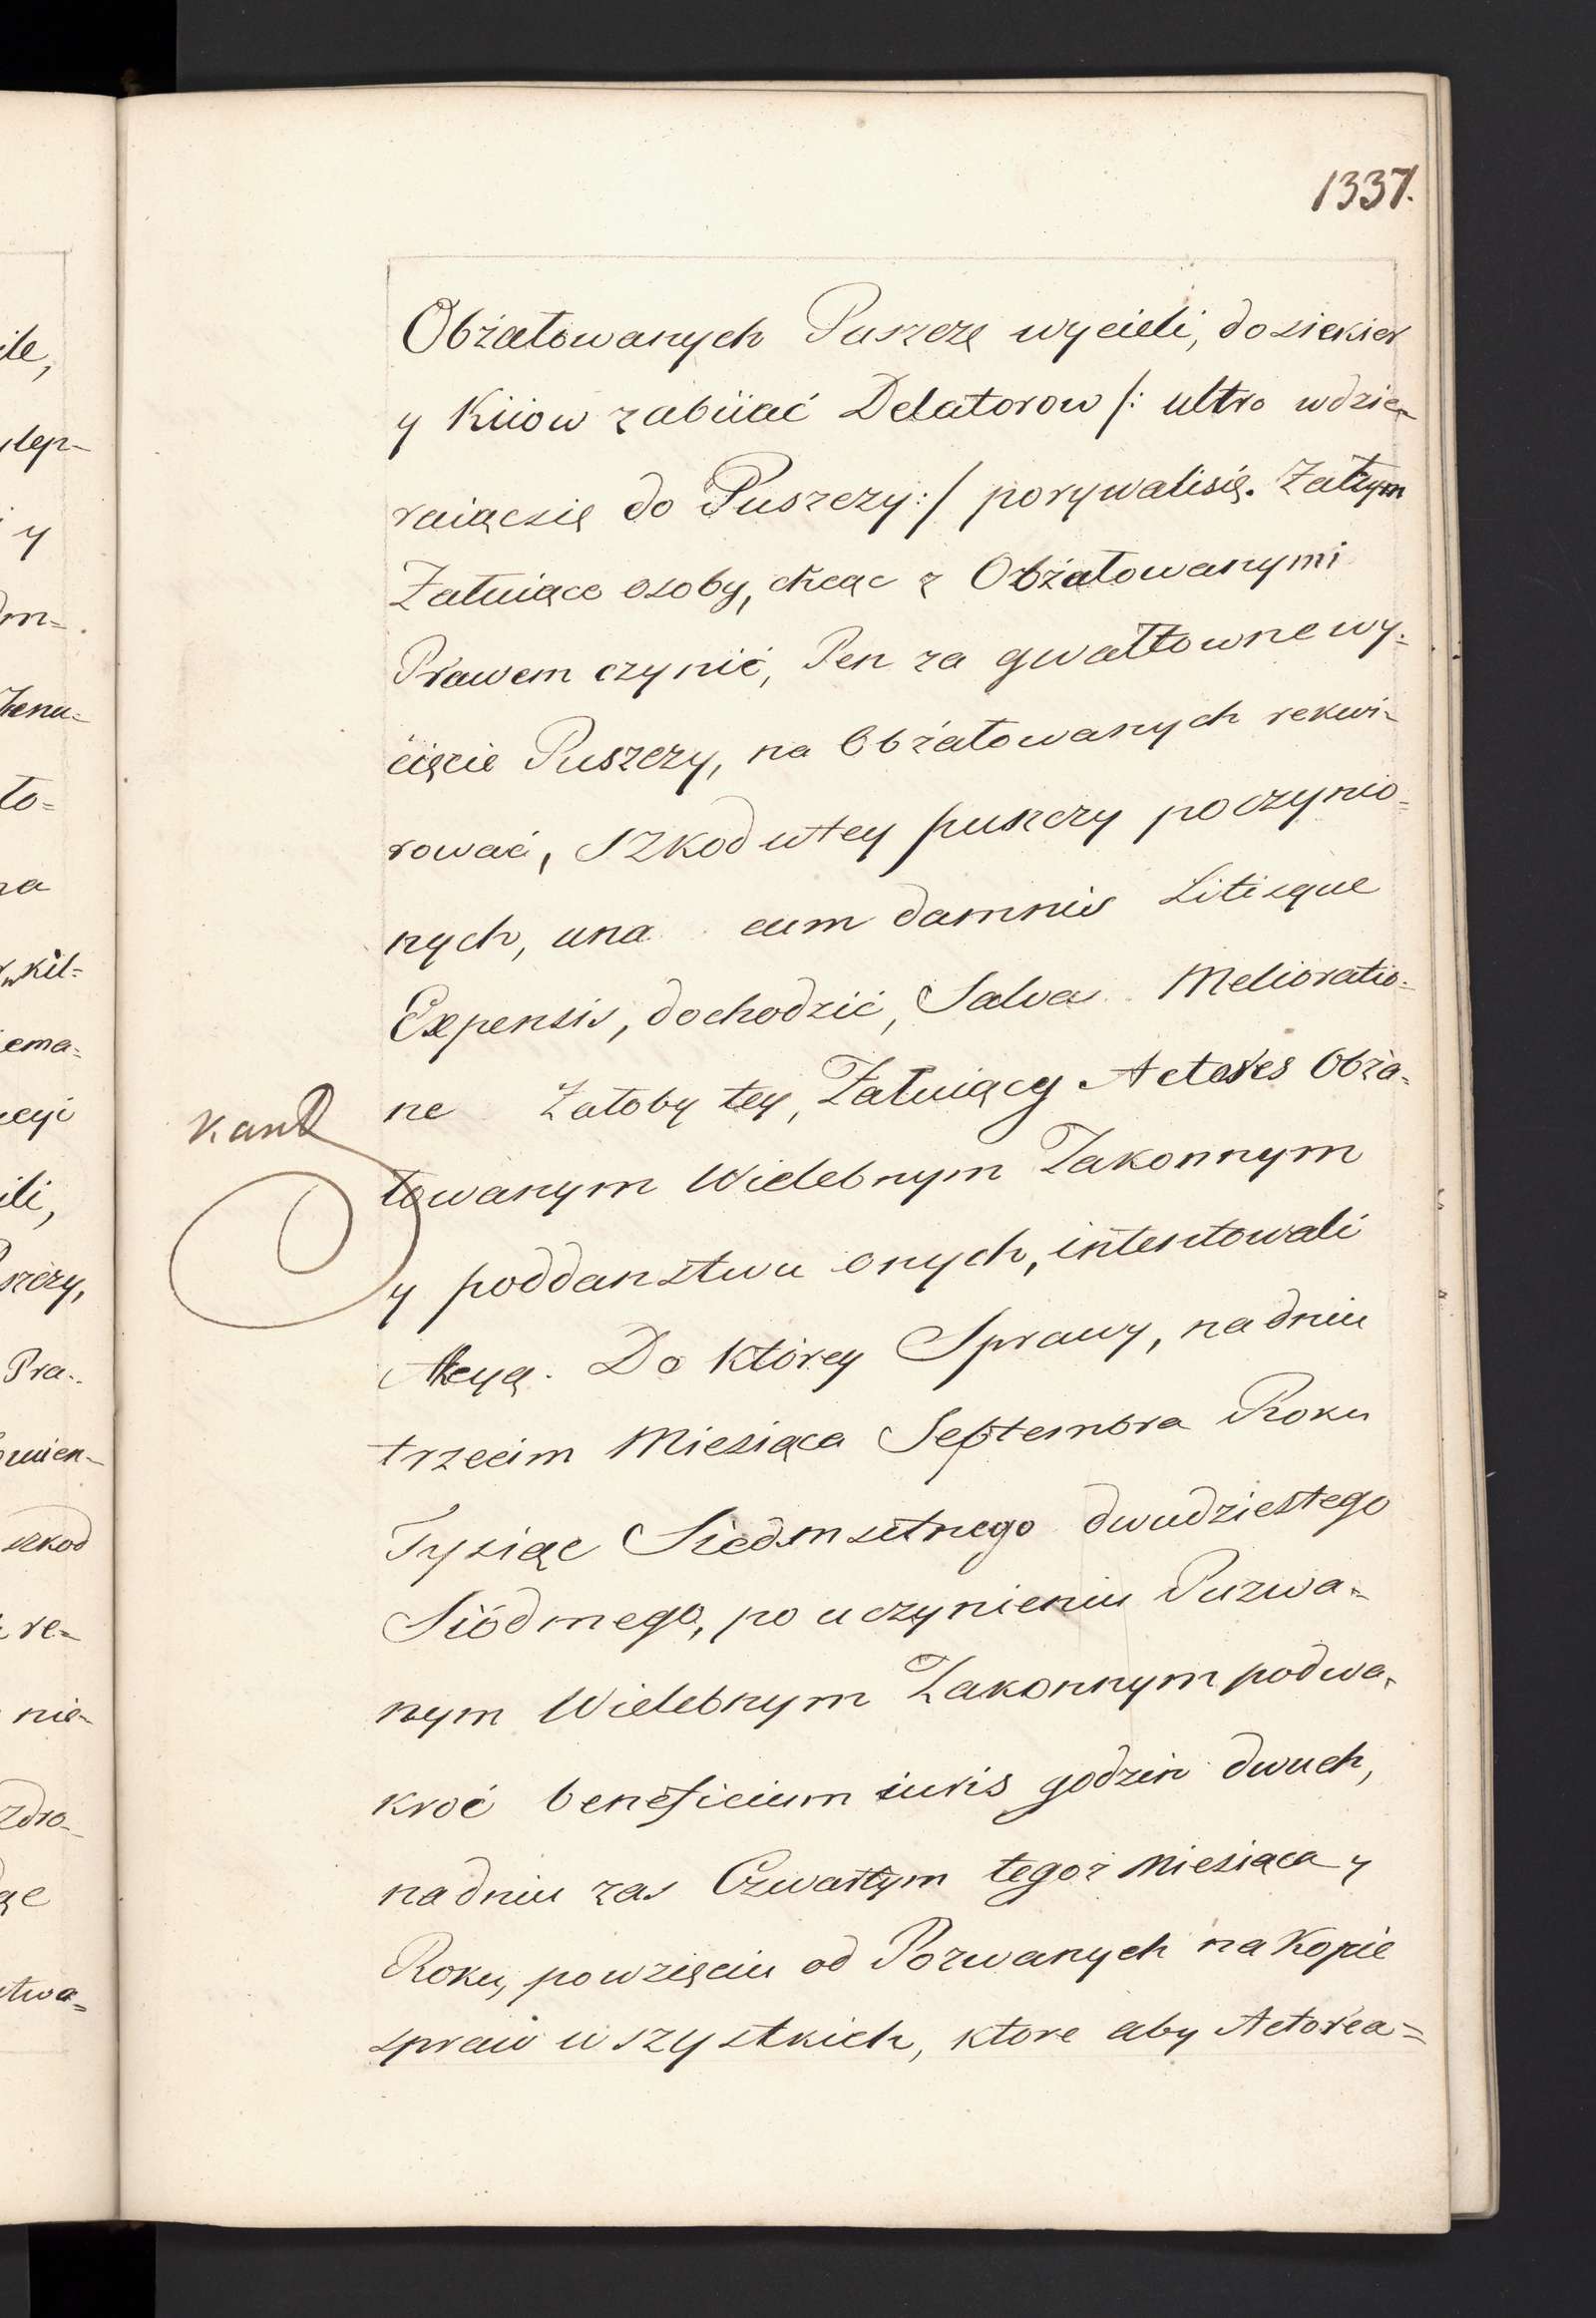 1337.
Obżałowanych Puszczę wycieli, do siekier
y Kiiow zabiiać Delatorow /: ultro wdzie-
raiącsię do Puszczy :/ porywalisię. Zatym
Żałuiące osoby, chcąc z Obżałowanymi
Prawem czynić, Pen za gwałtowne wy-
cięcie Puszczy, na Obżałowanych rekwi-
rować, szkod wtey puszczy poczynio=
nych, una cum damnis Litisque
Expensis, dochodzić, Salva Melioratio-
ne Żałoby tey, Żałuiący Actores Obża-
łowanym Wielebnym Zakonnym
y poddanstwu onych, intentowali
Akcyą. Do którey Sprawy, na dniu
trzecim Miesiąca Septembra Roku
Tysiąc Siedmsetnego dwudziestego
Siódmego, po uczynieniu Puzwa-
nym Wielebnym Zakonnym podwa-
kroć beneficium iuris godzin dwuch,
na dniu zas Czwartym tegoż Miesiąca y
Roku, powzięciu od Pozwanych na Kopie
spraw wszystkich, ktore aby Actorea=
ile,
y
to=
ili,
Pra-
szkod
re-
nie-
zdro-